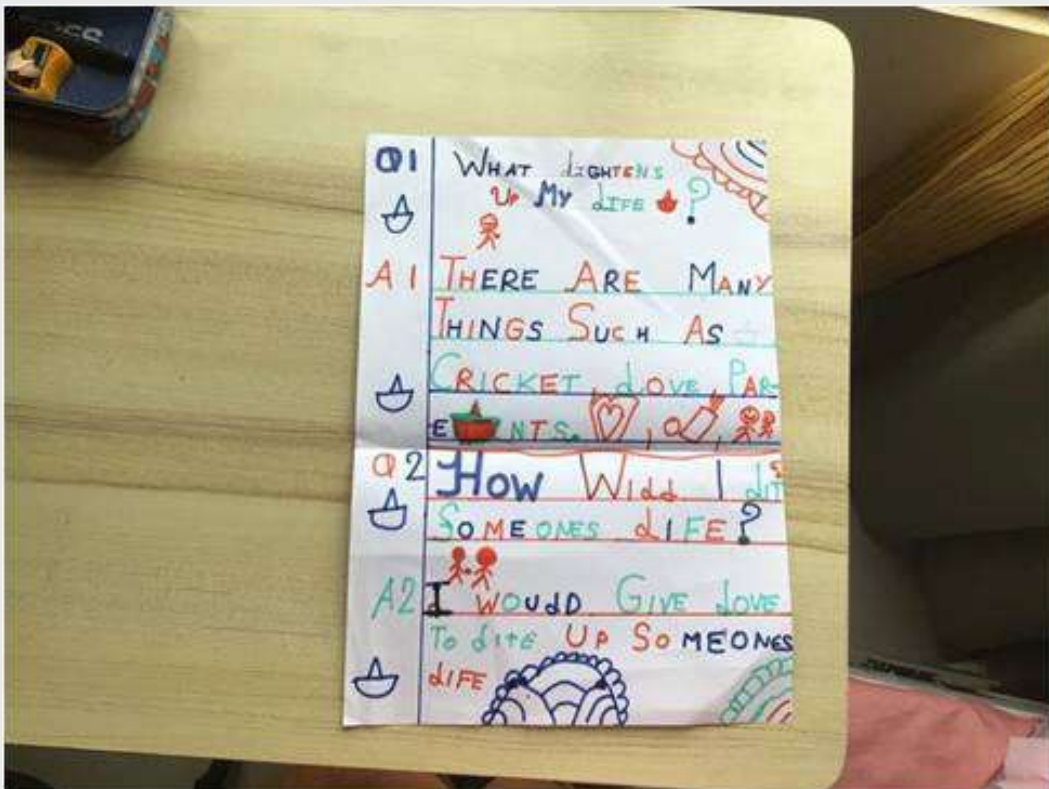 Q1 WHAT LIGHTENS
UP MY LIFE ?
A1 THERE ARE MANY
THINGS SUCH AS
CRICKET, LOVE, PAR-
ENTS.
Q2 HOW WILL I LIT
SOMEONES LIFE?
A2 I WOULD GIVE LOVE
TO LITE UP SOMEONES
LIFE